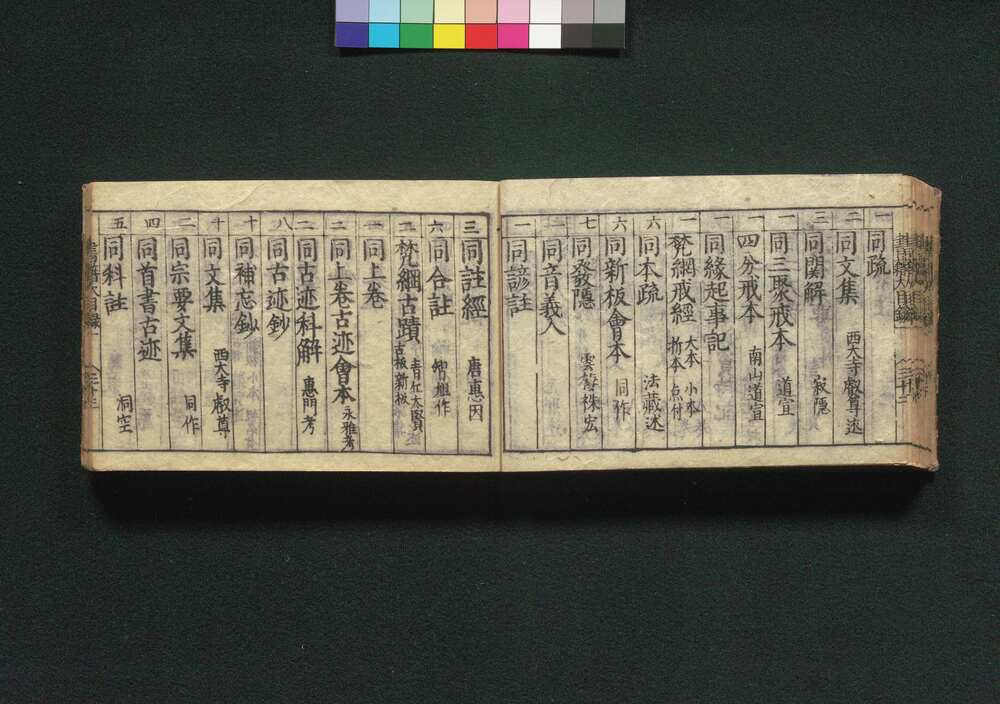 一 同疏
二 同文集 西大寺叡尊述
三 同関解 寂隱
一 同三聚戒本 道宣
一 四分戒本 南山道宣
一 同縁起事記
一 梵網戒經 大本 小本 折本 点付
六 同本疏 法藏述
六 同新板會本 同作
七 同發隱 雲棲袾宏
二 同音義入
一 同諺註
三 同註經 唐惠因
六 同合註
二 梵網古蹟 青丘大賢 古板新板
二 同上卷
二 同上卷古迹會本 永雅考
二 同古迹科解 惠門考
八 同古迹鈔
十 同補忘鈔
十 同文集 西大寺叡尊
二 同宗要文集 同作
四 同首書古迹
五 同科註 洞空
書籍次目録